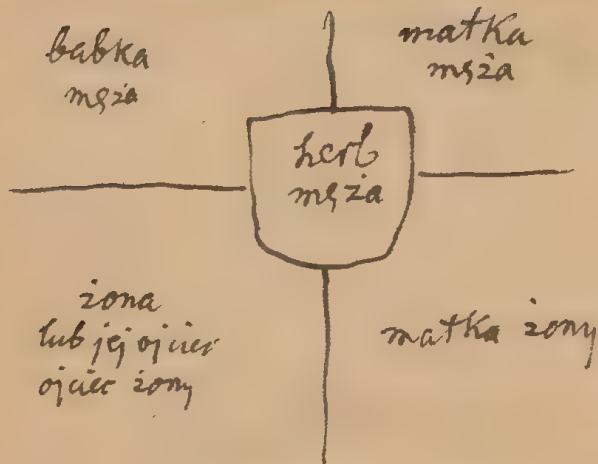 babka
męża
matka
męża
herb
męża
żona
lub jej ojciec
ojciec żony
matka żony